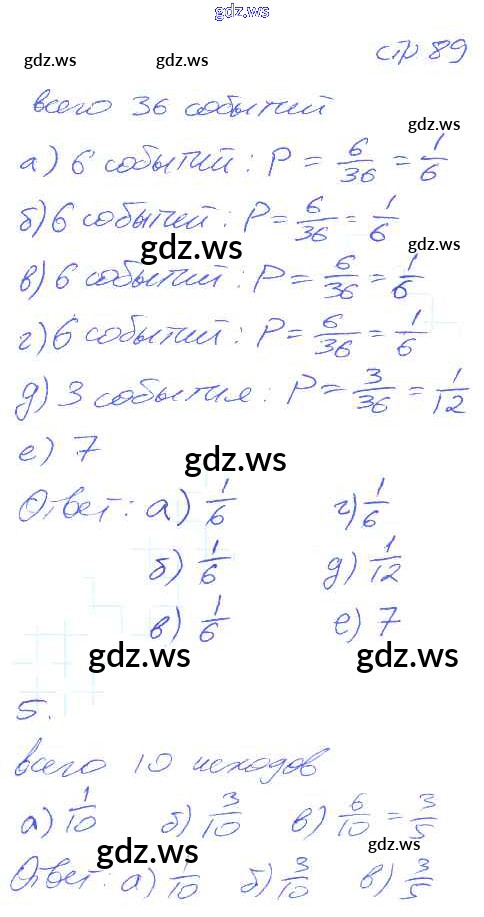 gdz.ws
стр 89
gdz.ws gdz.ws
всего 36 событий
gdz.ws
а) 6 событий: P = 6/36 = 1/6
б) 6 событий: P = 6/36 = 1/6
gdz.ws gdz.ws
в) 6 событий: P = 6/36 = 1/6
г) 6 событий: P = 6/36 = 1/6
д) 3 события: P = 3/36 = 1/12
е) 7
gdz.ws
Ответ: а) 1/6 г) 1/6
б) 1/6 д) 1/12
в) 1/6 е) 7
gdz.ws gdz.ws
5.
всего 10 исходов
а) 1/10 б) 3/10 в) 6/10 = 3/5
gdz.ws gdz.ws
Ответ: а) 1/10 б) 3/10 в) 3/5